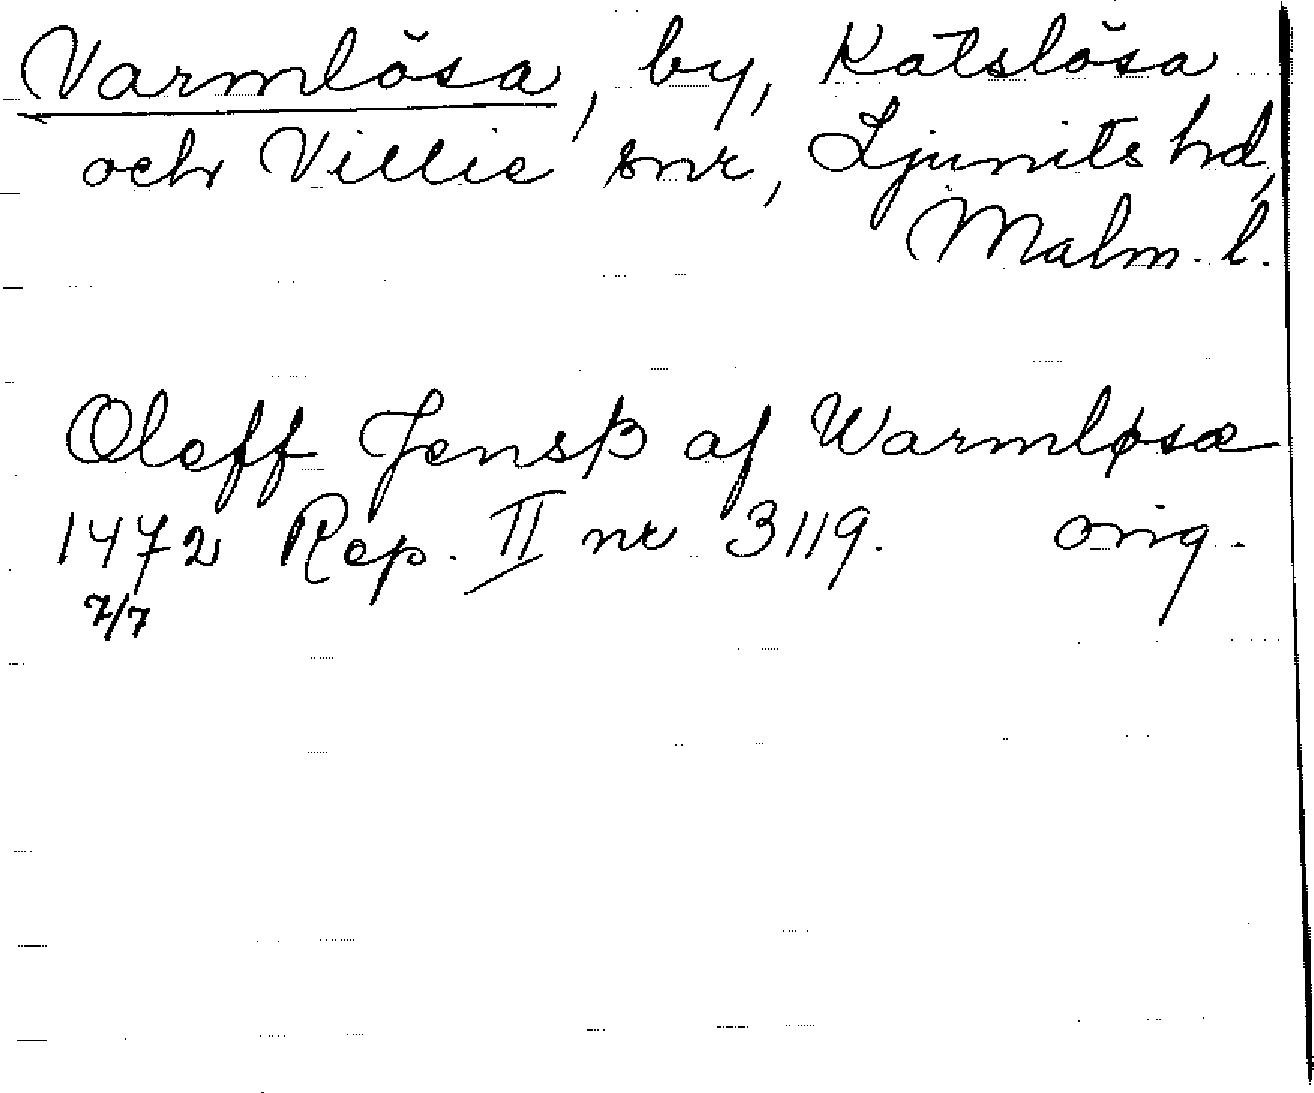 Varmlösa, by, Katslösa
och Villie snr, Ljunits hd,
Malm. l.
Oleff Jensß af Warmløsæ
1472 Rep. II nr 3119. orig.
7/7